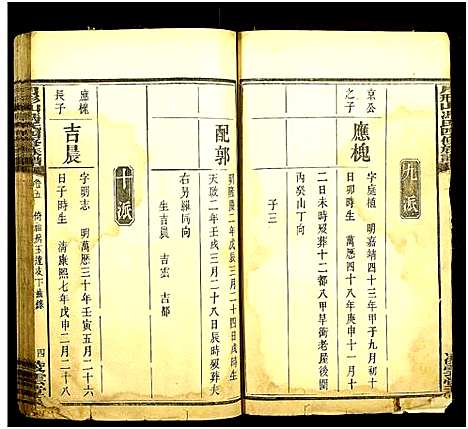 九派
京公之子
應槐
字庭植 明嘉靖四十三年甲子九月初十
日卯時生 明萬曆四十八年庚申十一月
二日未時歿葬十二都早衝老屋後園
丙癸山丁向
子三
配郭
明隆慶二年戊辰三月二十四日戌時生
天啟二年壬戌三月二十八日辰時歿葬夫
右另羅同向
生吉晨 吉雲 吉都
十派
應槐長子
吉晨
字明志 明萬曆三十年壬寅五月二十六
日子時生 清康熙七年戊申二月二十八
卷五
四